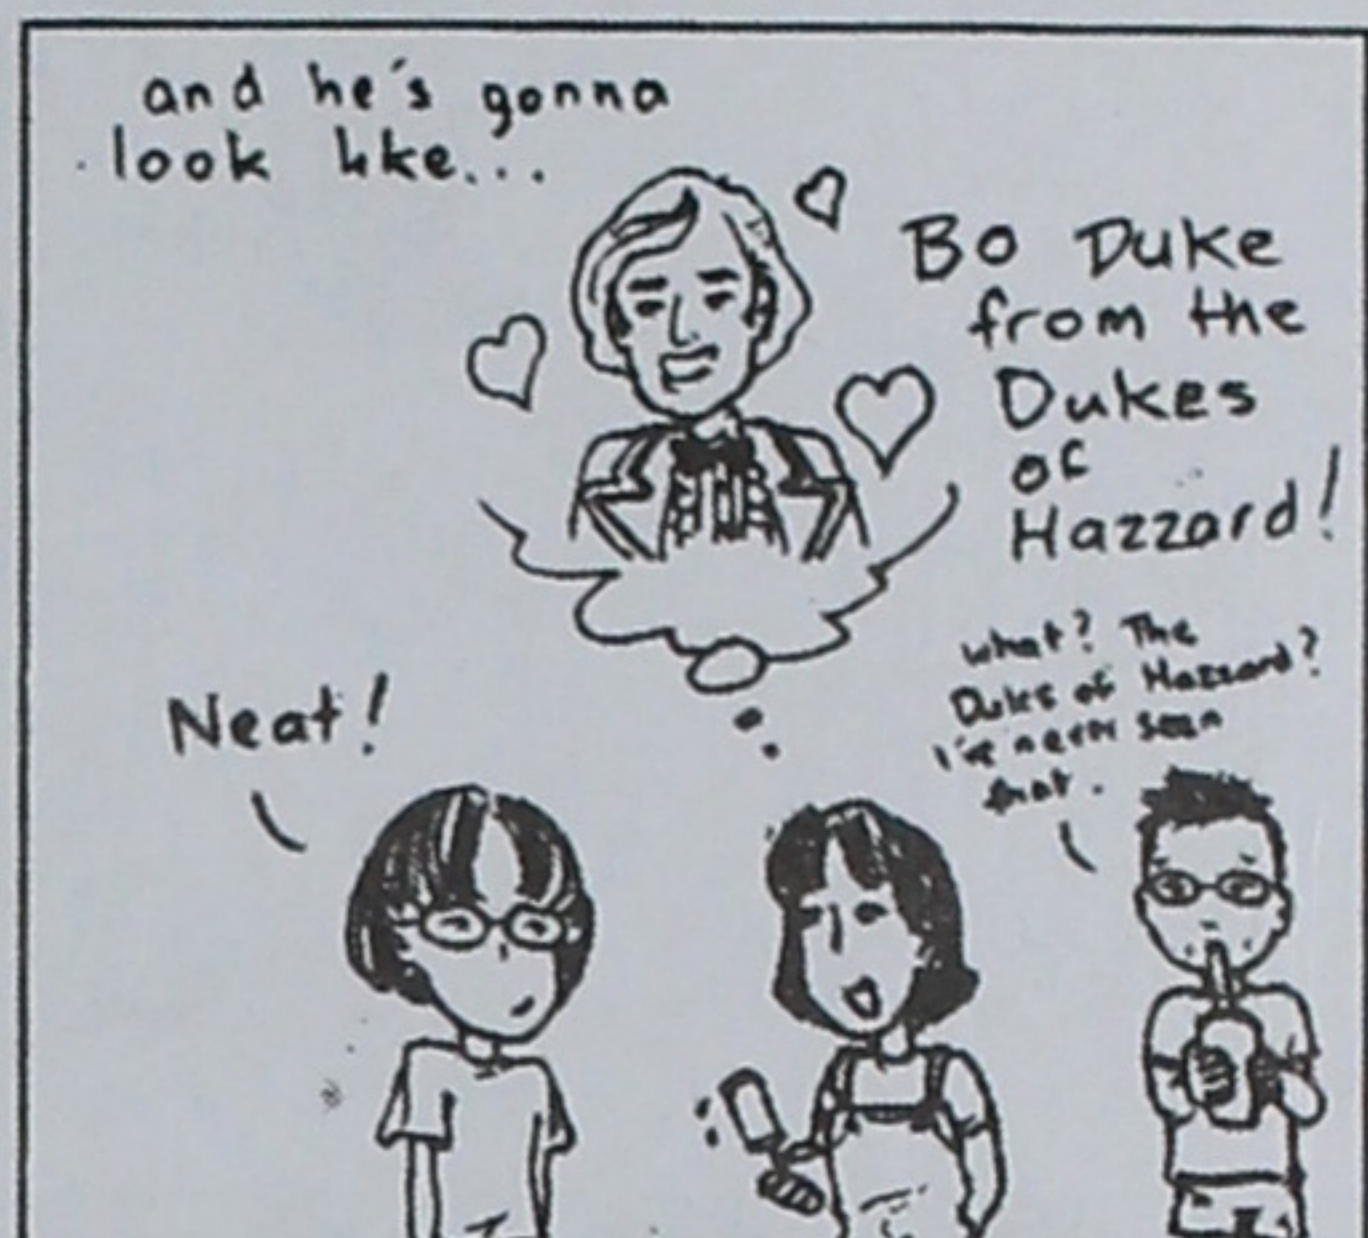 and he's gonna
look like...
Bo Duke
from the
Dukes
of
Hazzard!
Neat!
what? The
Dukes of Hazzard?
I've never seen
that.